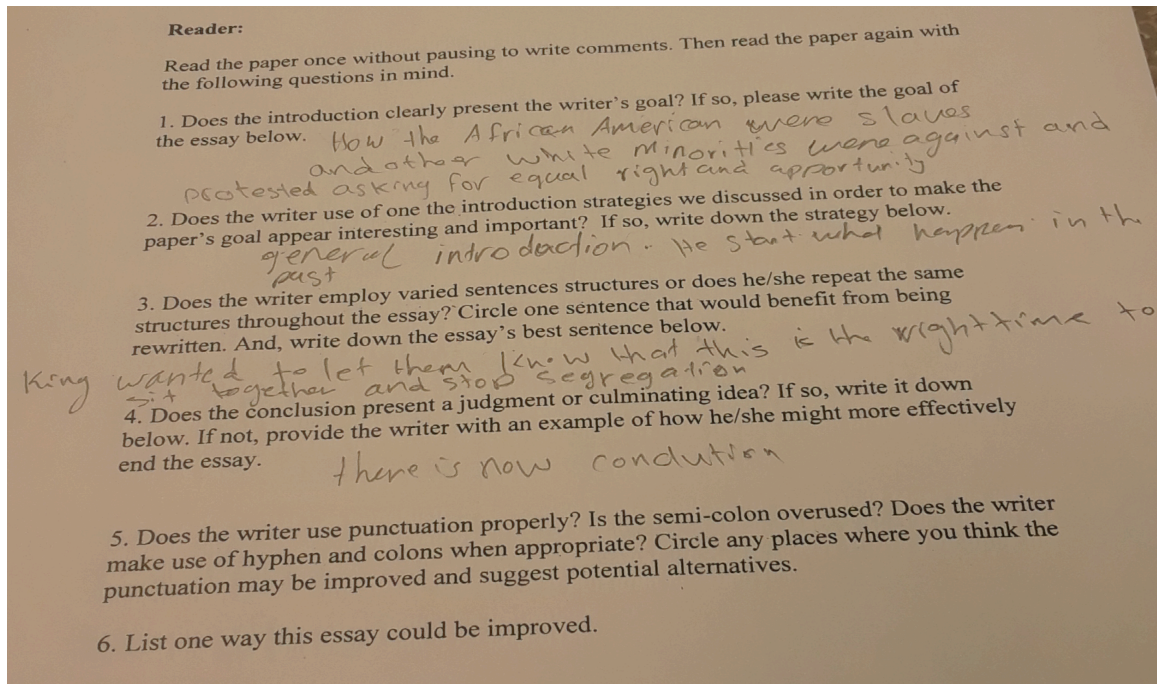 Reader:
Read the paper once without pausing to write comments. Then read the paper again with
the following questions in mind.
1. Does the introduction clearly present the writer's goal? If so, please write the goal of
the essay below. How the African American were slaves
and other white minorities were against and
protested asking for equal right and apportunity
2. Does the writer use of one the introduction strategies we discussed in order to make the
paper's goal appear interesting and important? If so, write down the strategy below.
general introduction. He start what happen in the
past
3. Does the writer employ varied sentences structures or does he/she repeat the same
structures throughout the essay? Circle one sentence that would benefit from being
rewritten. And, write down the essay's best sentence below.
King wanted to let them know that this is the wright time to
sit together and stop segregation
4. Does the conclusion present a judgment or culminating idea? If so, write it down
below. If not, provide the writer with an example of how he/she might more effectively
end the essay. there is now conclution
5. Does the writer use punctuation properly? Is the semi-colon overused? Does the writer
make use of hyphen and colons when appropriate? Circle any places where you think the
punctuation may be improved and suggest potential alternatives.
6. List one way this essay could be improved.